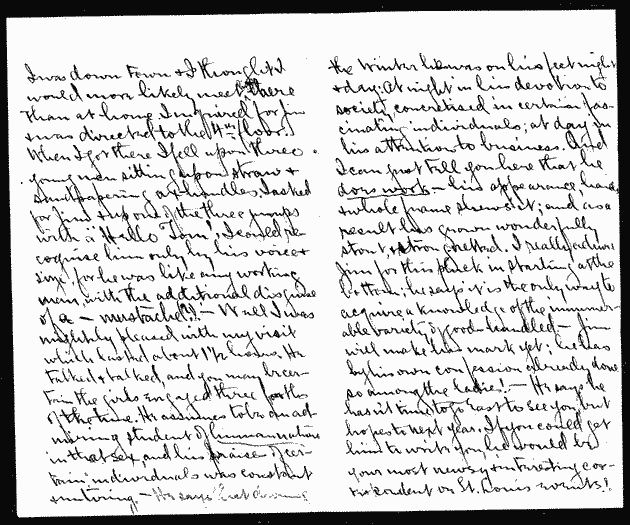 I was down Town & I thought I
would more likely meet there
than at home I inquired for Jim
& was directed to the 4th floor.
When I got there I fell upon three
young men sitting upon straw &
sandpapering axhandles. I asked
for Jim & up one of the three jumps
with a "Hello Tom", I could re-
cognise him only by his voice &
size, for he was like any working
man, with the additional disguise
of a — mustache!! — Well I was
mighty pleased with my visit
which lasted about 1½ hours. He
talked & talked, and you may be cer-
tain the girls engaged three fourths
of the time. He assumes to be an ad-
miring student of human nature
in that sex, and his praise of cer-
tain individuals was constant
& untiring. — He says that during
the Winter he was on his feet night
& day: At night in his devotion to
society, concretised in certain fas-
cinating individuals; at day in
his attention to business. And
I can just tell you here that he
does work — his appearance, hands,
& whole frame shows it; and as a
result has grown wonderfully
stout, & strong necked. I really admire
Jim for his pluck in starting at the
bottom; he says it is the only way to
acquire a knowledge of the innumer-
able variety of goods handled — Jim
will make his mark yet; he has
by his own confession already done
so among the ladies! — He says he
has it time to go East to see you, but
hopes to next year. If you could get
him to write you, he would be
your most newsy & interesting cor-
respondent on St. Louis events!